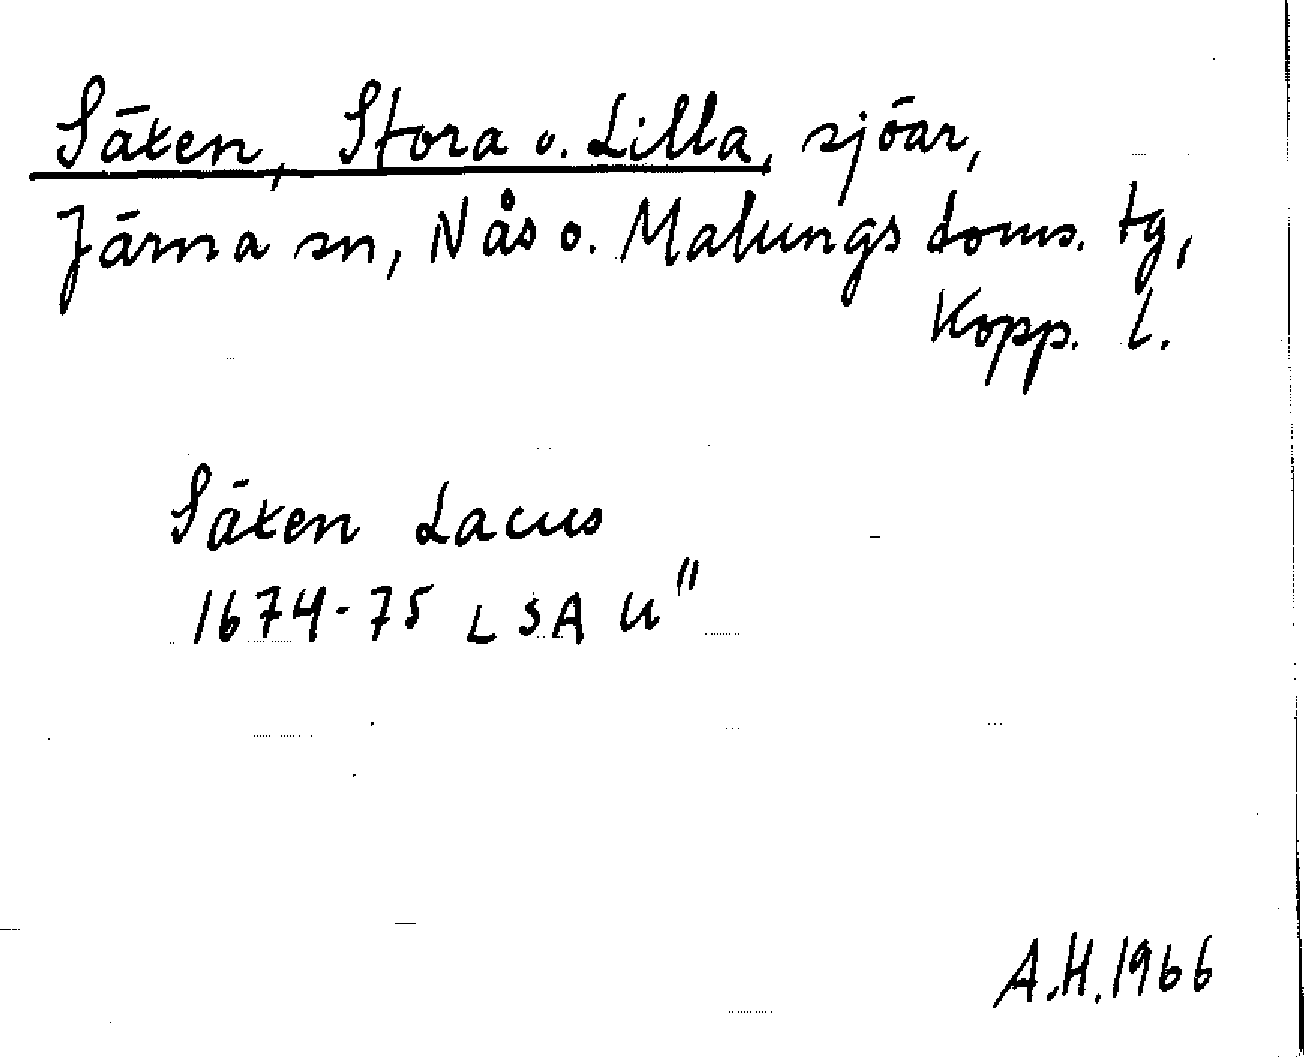 Säxen, Stora o. Lilla, sjöar,
Järna sn, Nås o. Malungs doms. tg,
Kopp. l.
Säxen Lacus
1674-75 LSA U"
A.H. 1966